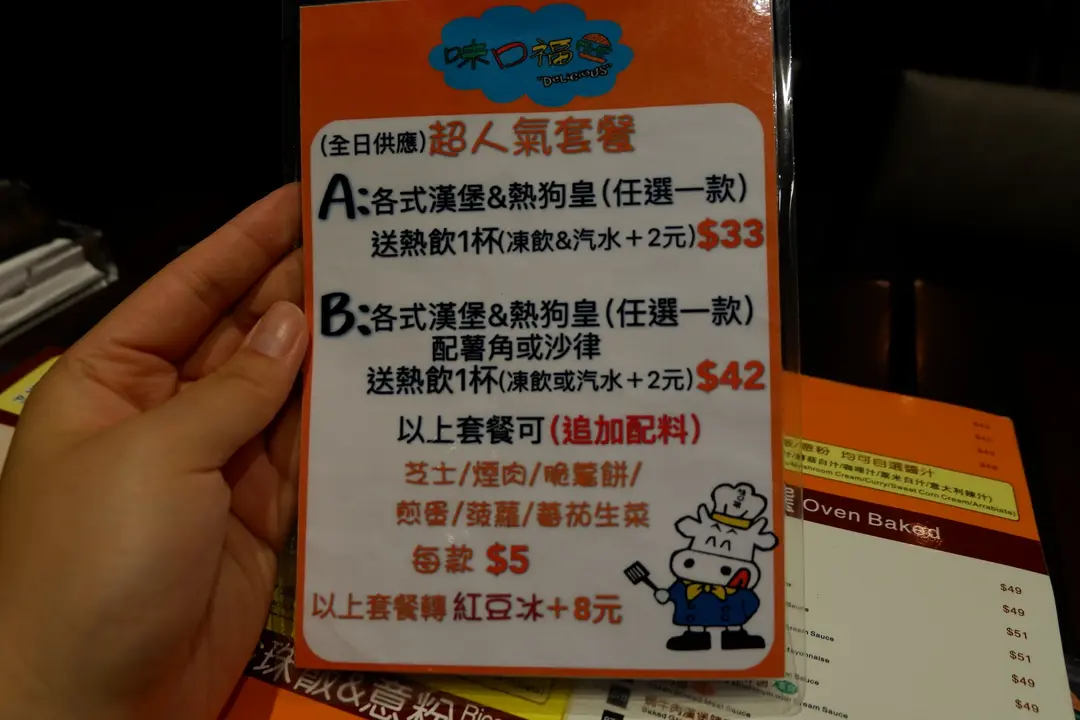 味口福
"DELICIOUS"
(全日供應)超人氣套餐
A:各式漢堡&熱狗皇(任選一款)
送熱飲1杯(凍飲&汽水+2元)$33
B:各式漢堡&熱狗皇(任選一款)
配薯角或沙律
送熱飲1杯(凍飲或汽水+2元)$42
以上套餐可(追加配料)
芝士/煙肉/脆薯餅/
煎蛋/菠蘿/蕃茄生菜
每款 $5
以上套餐轉紅豆冰+8元
均可自選醬汁
Mushroom Cream/Curry/Sweet Corn Cream/Arrabiata)
Oven Baked
$49
$49
$51
$51
$49
$49
珠飯&意粉